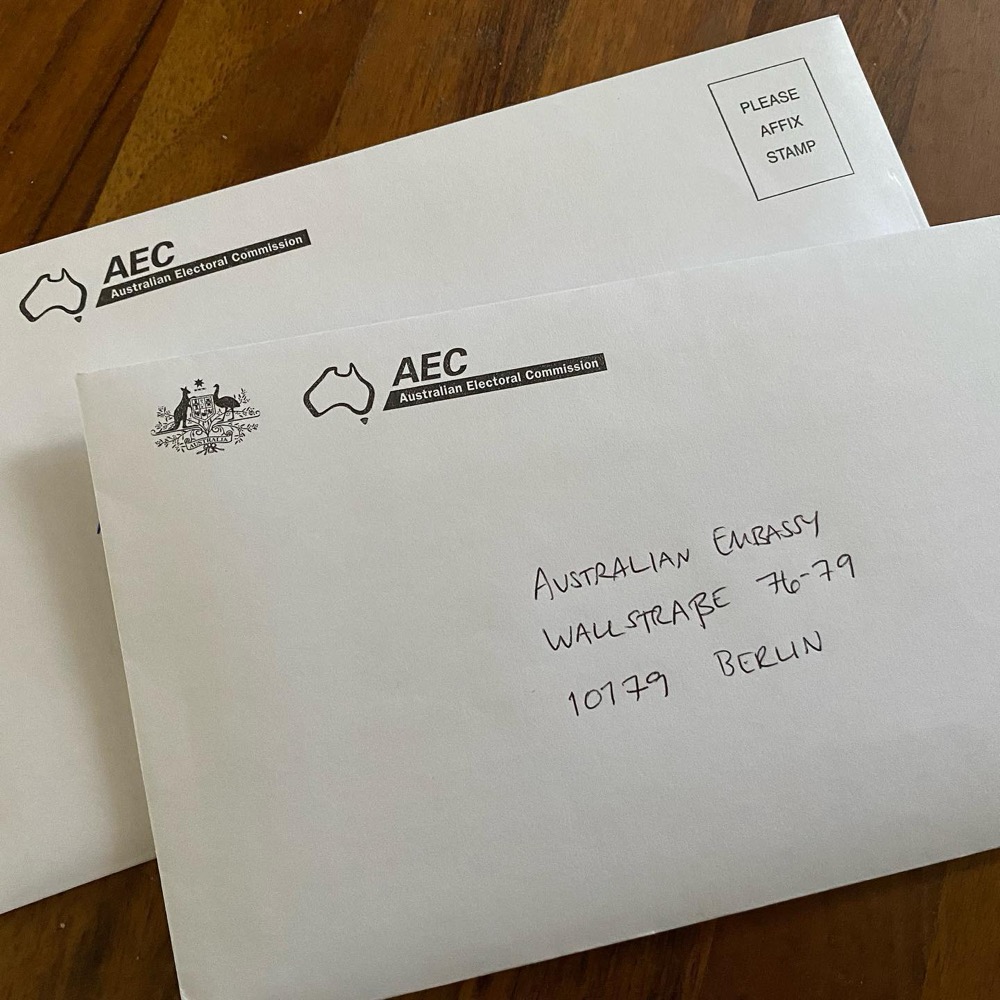 PLEASE
AFFIX
STAMP
AEC
Australian Electoral Commission
AUSTRALIA
AEC
Australian Electoral Commission
AUSTRALIAN EMBASSY
WALLSTRAßE 76-79
10179 BERLIN